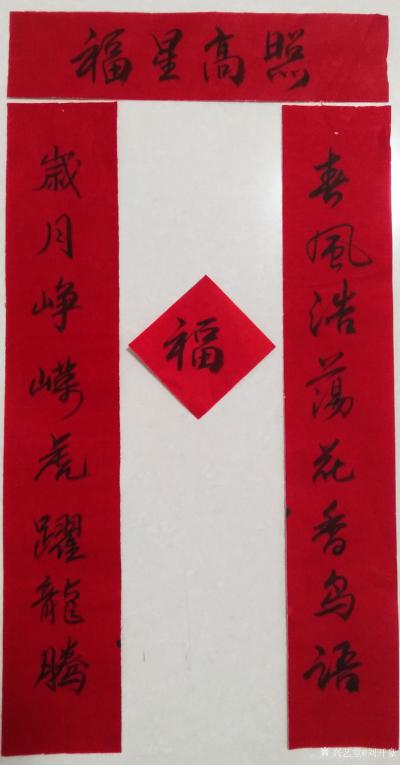 福星高照
春風浩蕩花香鸟语
歲月峥嵘虎躍龍騰
福